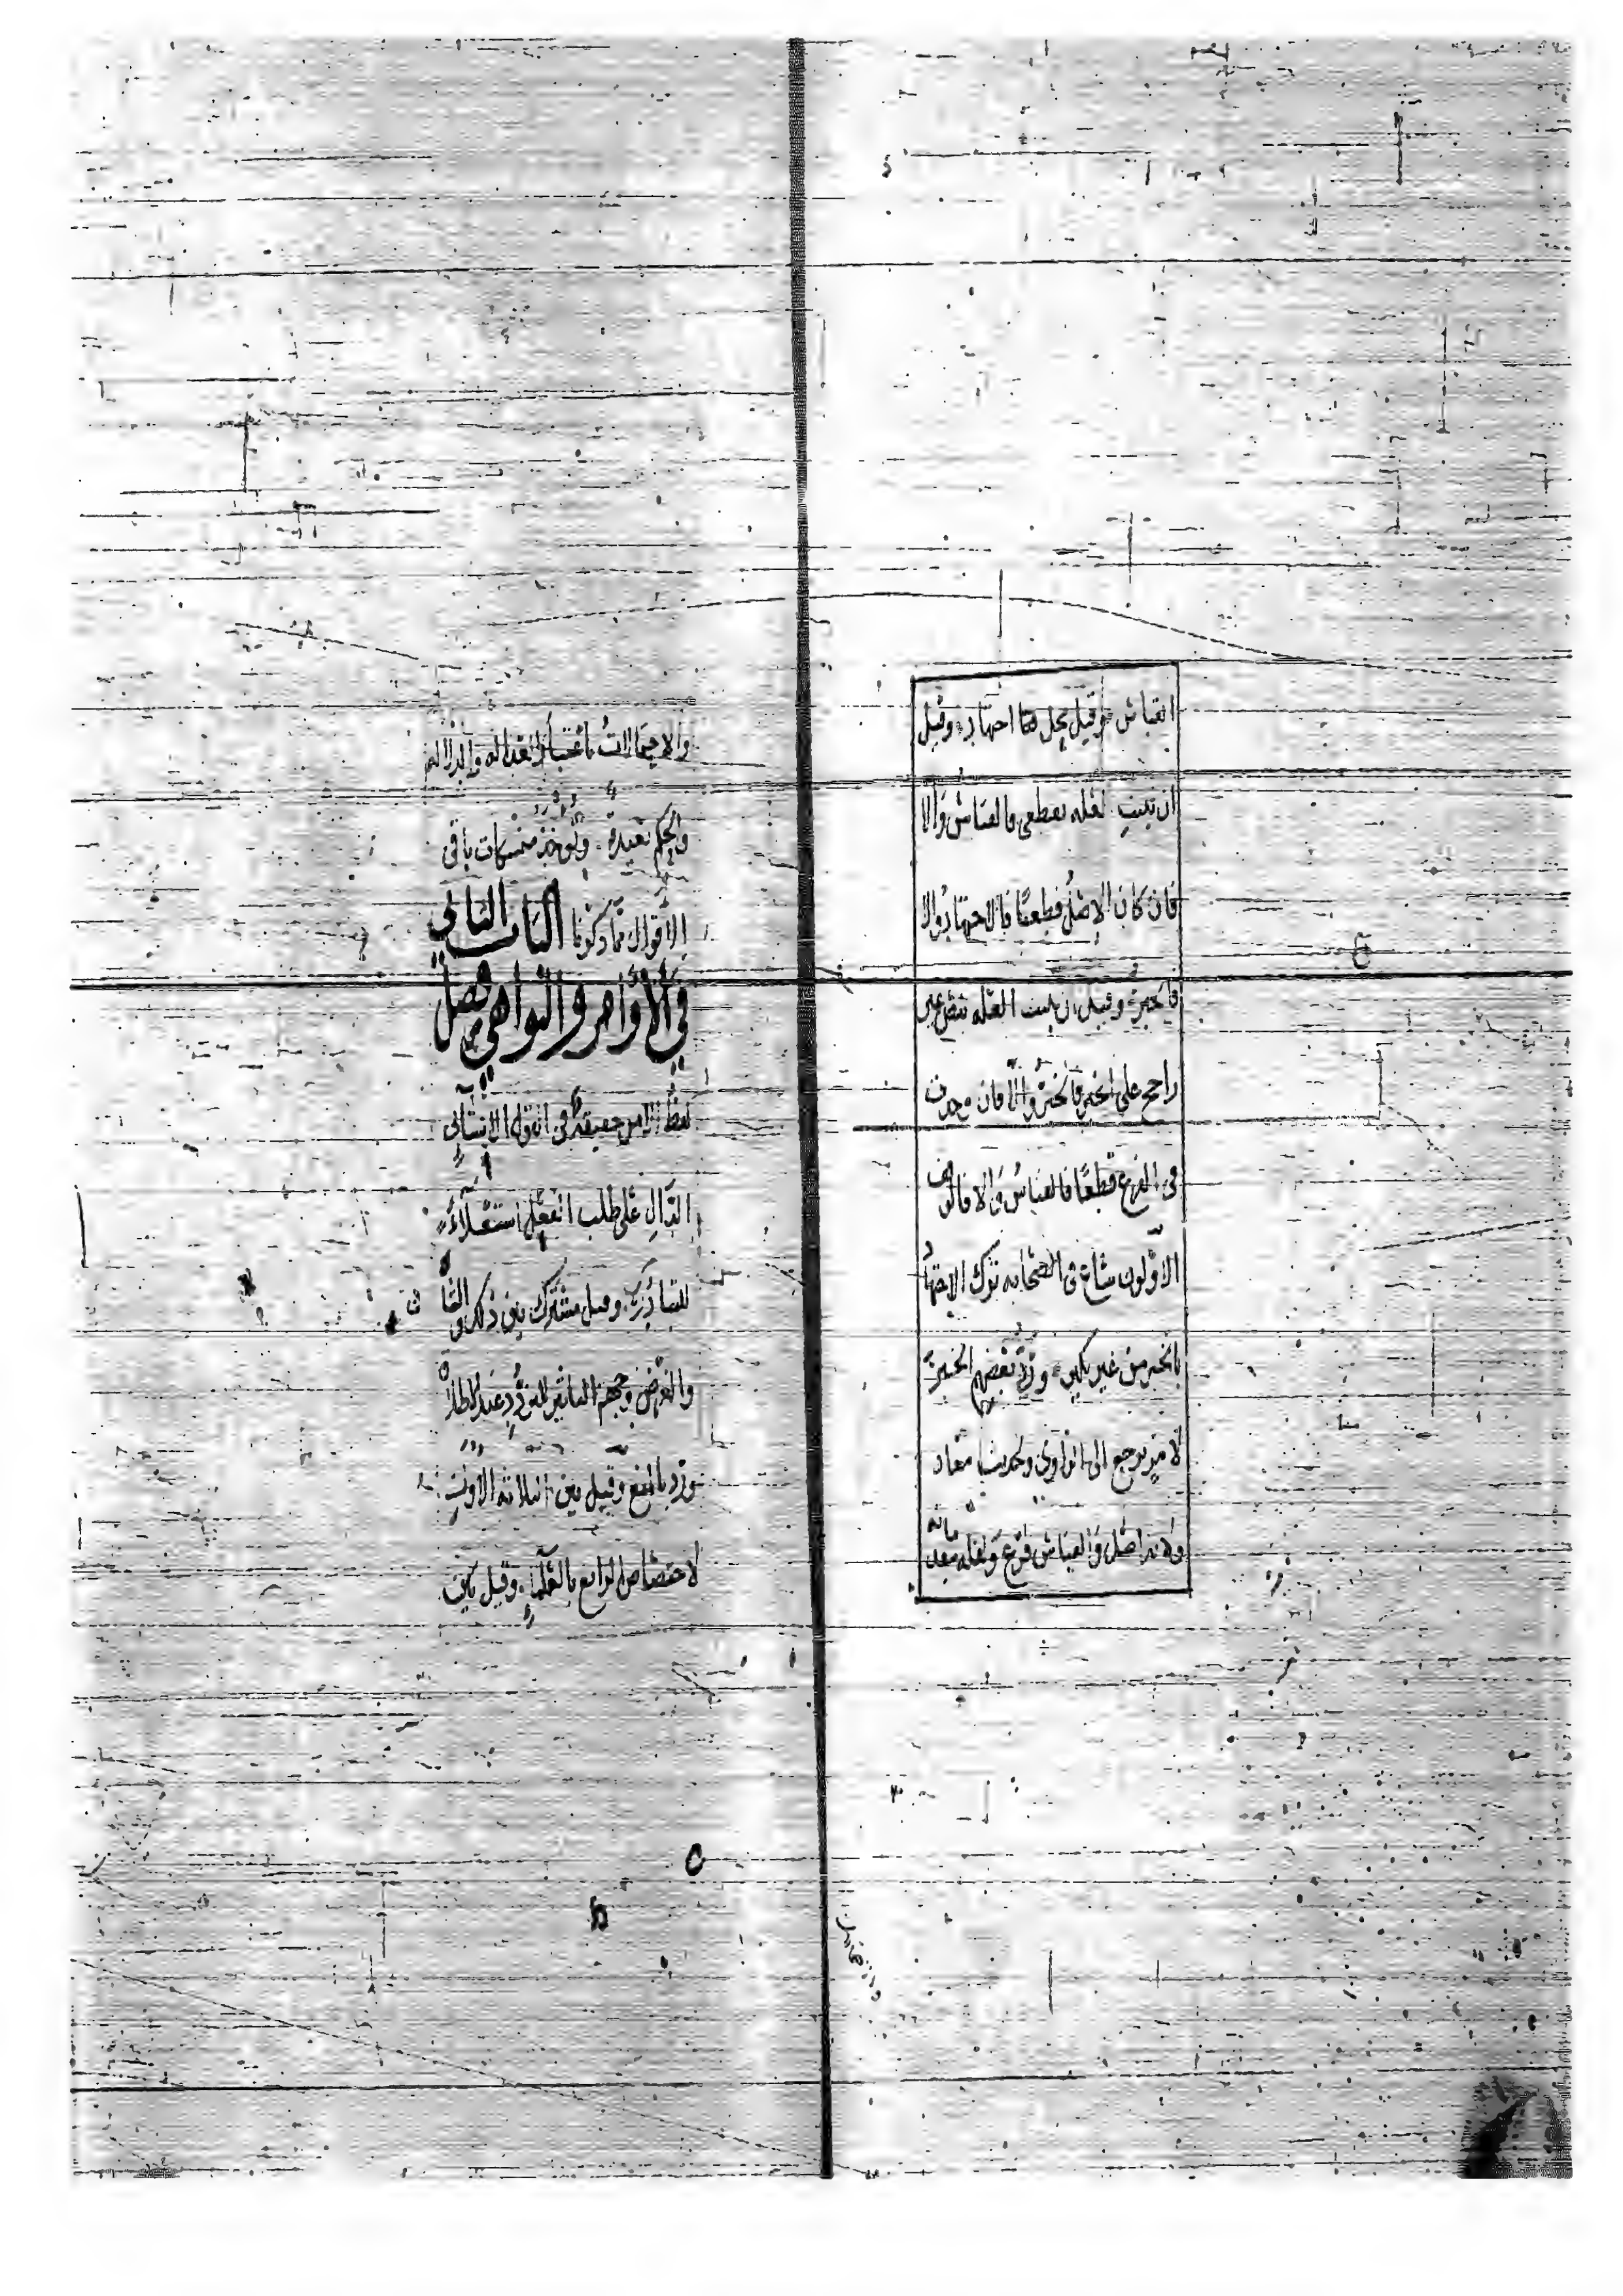 القياس وقيل محل اجتهاد وقيل
ان ثبتت العله بقطعى فالقياس والا
فان كان الاصل قطعيا فالاجتهاد والا
فالخبر وقيل ان ثبتت العله بنص غير
راجح على الخبر فالخبر والا فان وجدت
فى الفرع قطعا فالقياس والا فالوقف
الاولون شاع فى الصحابه ترك الاجتهاد
بالخبر من غير نكير ورد بعضهم الخبر
لامر يرجع الى الراوى ولحديث معاذ
ولانه اصل والقياس فرع
والاحتمالات باعتبار العداله والدلاله
والحكم بعيده وتؤخذ متمسكات باقى
الاقوال مما ذكرنا الباب الثانى
فى الاوامر والنواهى فصل
لفظ الامر حقيقة فى القول الانشائى
الدال على طلب الفعل استعلاء
للتبادر وقيل مشترك بين ذلك و الشان
والغرض وجهة التاثير للتردد عند الاطلاق
ورد بالمنع وقيل بين الثلاثه الاول
لاختصاص الرابع بالعلماء وقيل بين